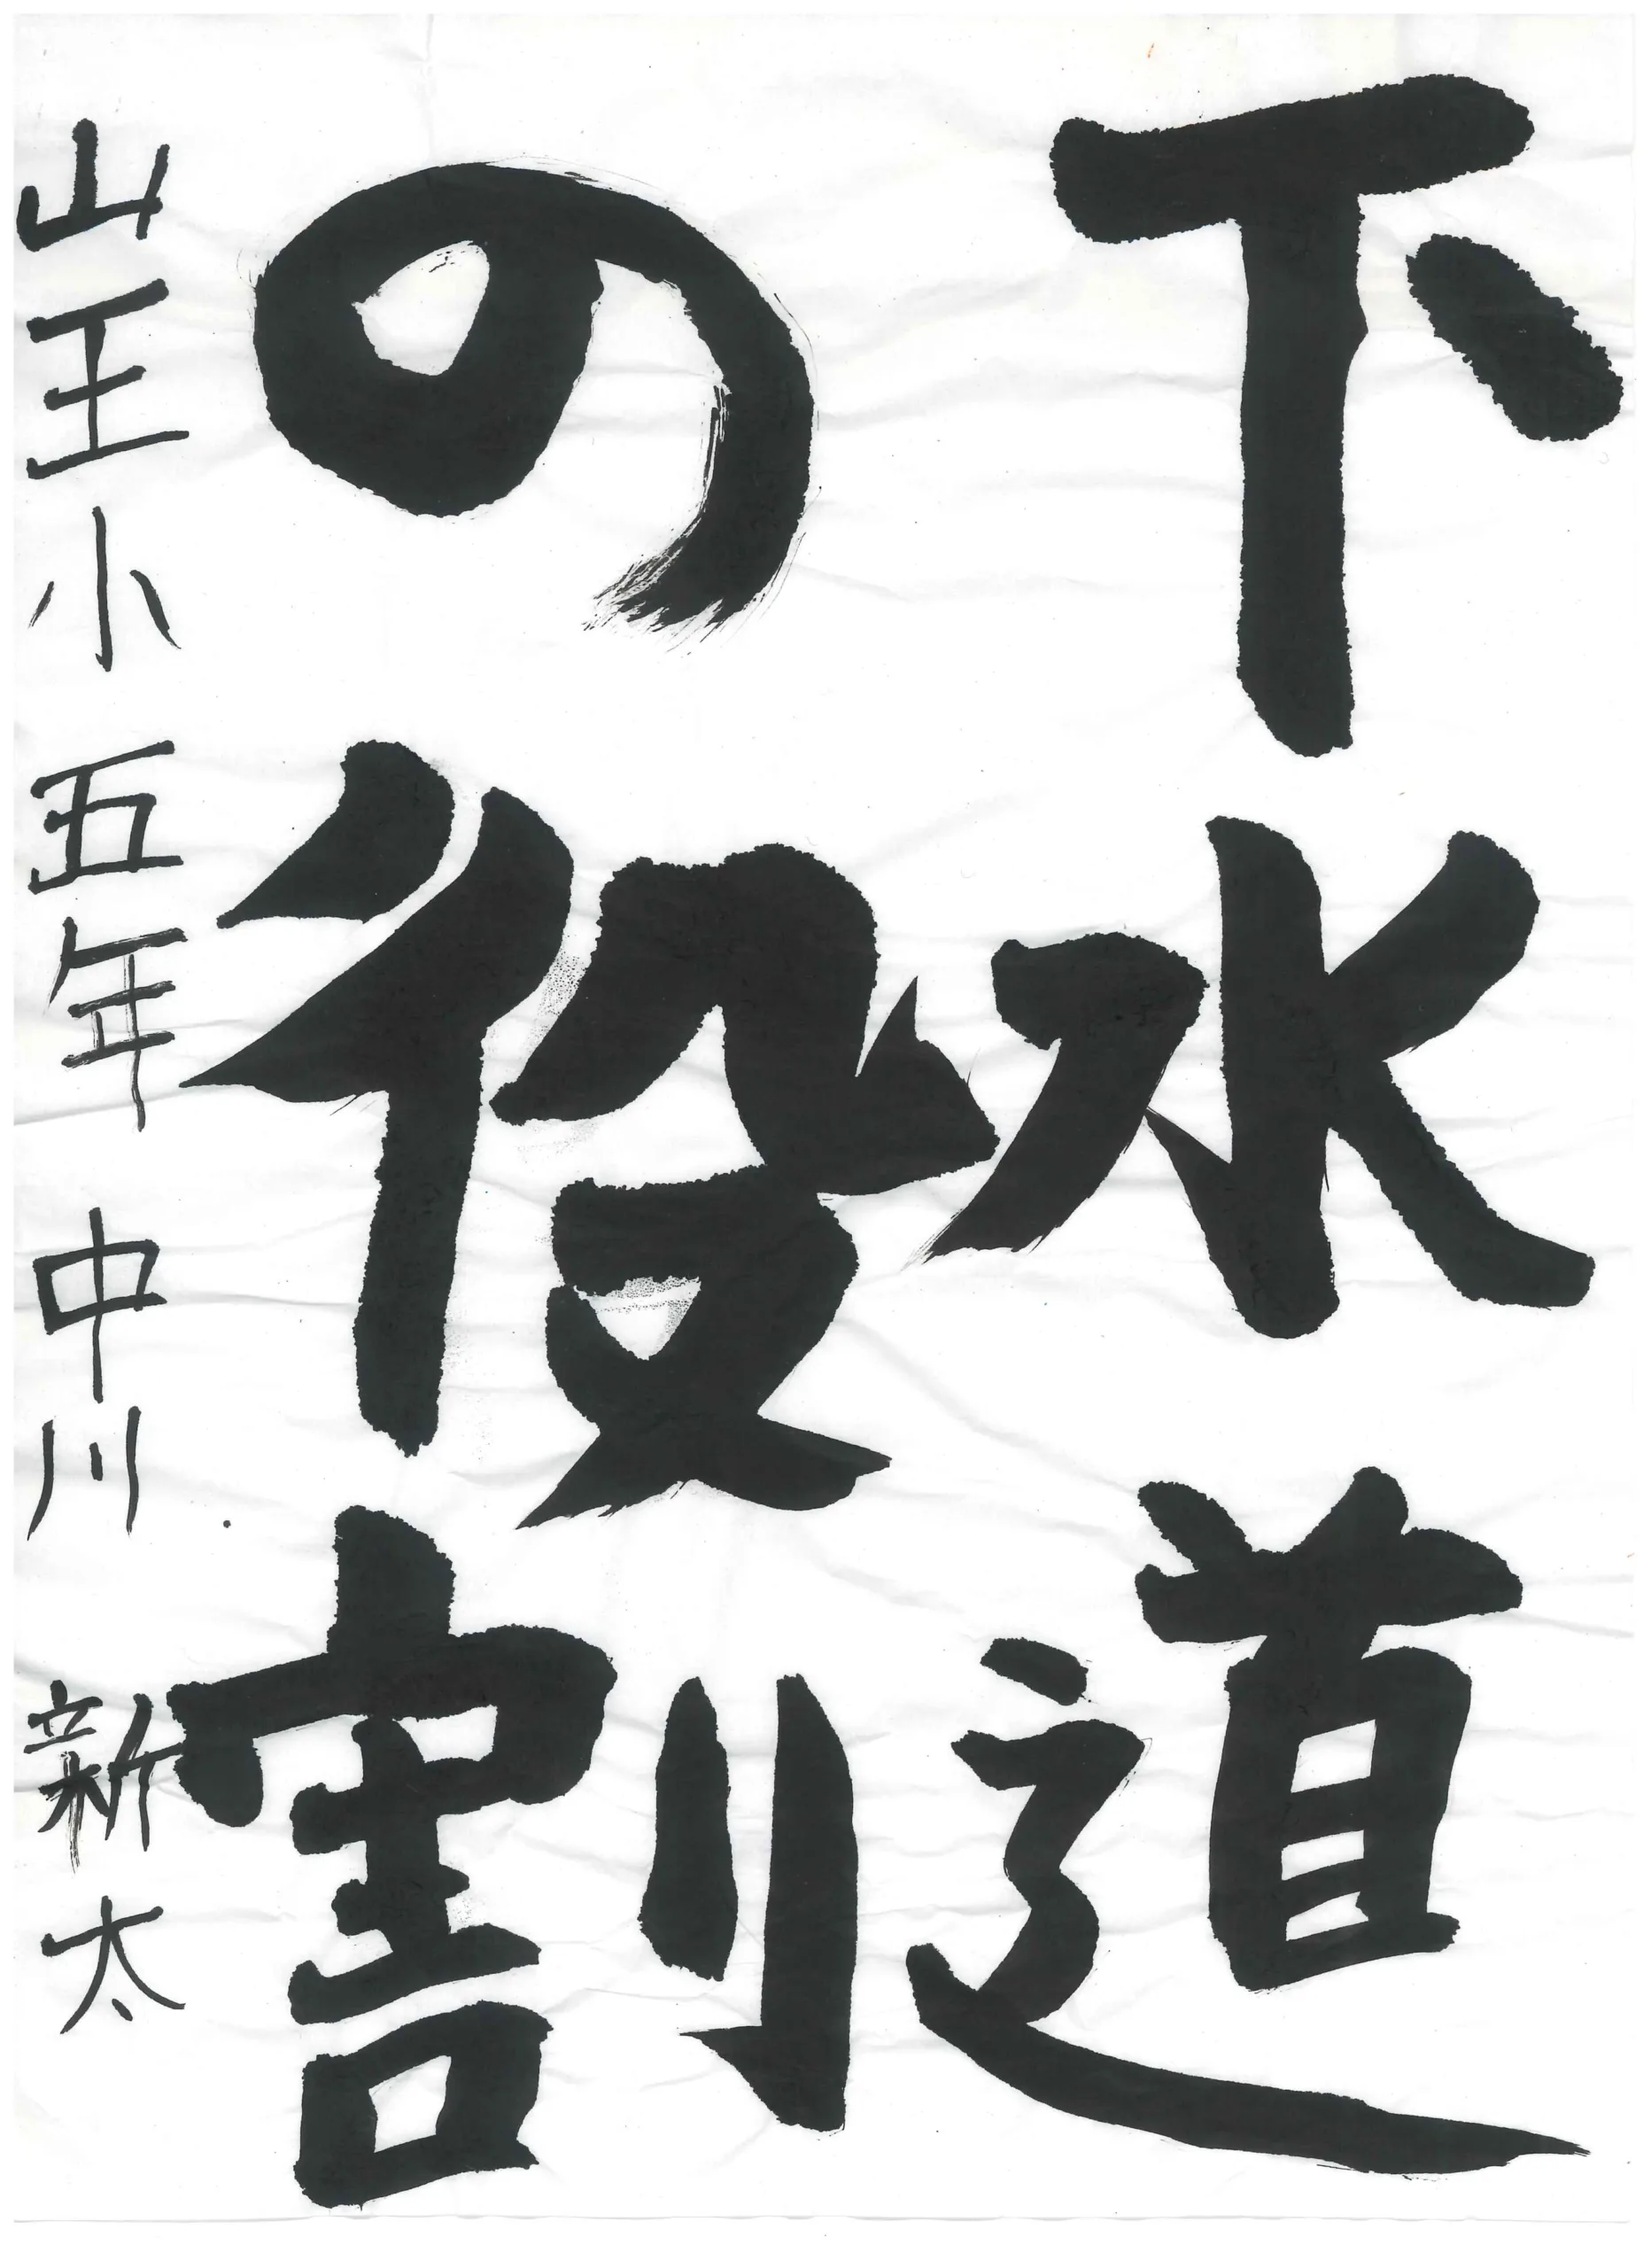 下水道
の役割
山王小 五年 中川 新太